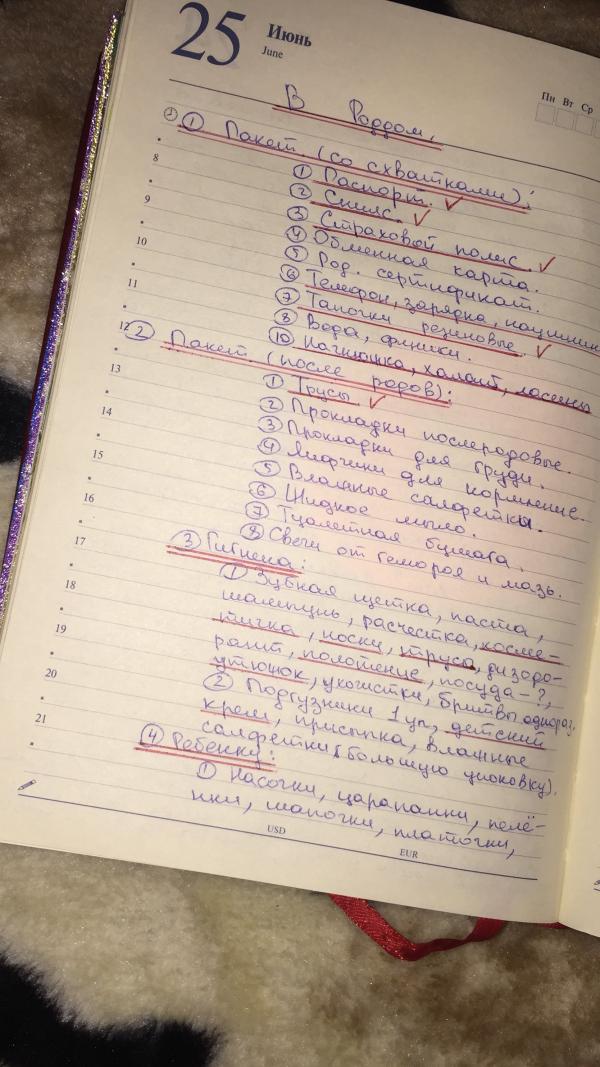 25 Июнь
June
Пн Вт Ср
В Роддом.
① Пакет (со схватками):
① Паспорт. ✓
8
② Снилс. ✓
③ Страховой полис. ✓
9
④ Обменная карта.
⑤ Род. сертификат.
10
⑥ Телефон, зарядка, наушники
⑦ Тапочки резиновые. ✓
11
⑧ Вода, финики.
⑩ Ночнюшка, халат, лосины
12
② Пакет (после родов):
① Трусы ✓
13
② Прокладки послеродовые.
③ Прокладки для груди.
14
④ Лифчики для кормление.
⑤ Влажные салфетки.
15
⑥ Жидкое мыло.
⑦ Туалетная бумага.
16
⑧ Свечи от гемороя и мазь.
17
③ Гигиена:
① Зубная щетка, паста,
18
шампунь, расчестка, косме-
тичка, носки, трусы, дизодо-
19
рант, полотенце, посуда-?,
утюжок, ухочистки, бритвы однораз.
20
② Подгузники 1 уп, детский
крем, присыпка, влажные
21
салфетки (большую упоковку).
④ Ребенку:
① Насочки, царапанки, пелё-
нки, шапочки, платочки,
USD
EUR